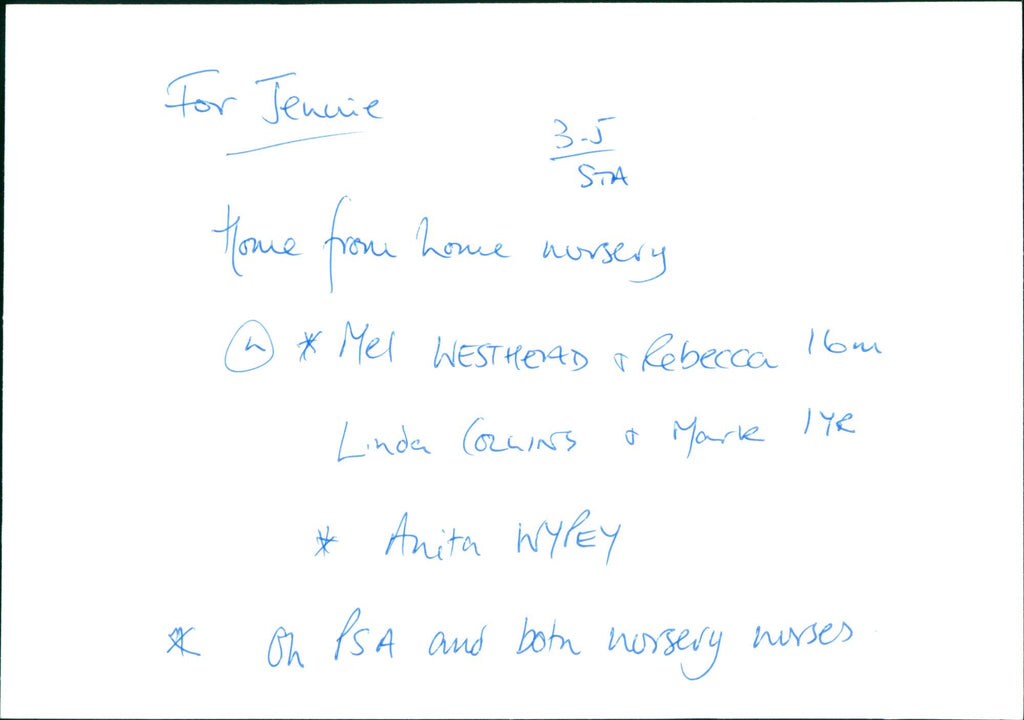 For Jennie
3-5
STA
Home from home nursery
* Mel WESTHEAD & Rebecca 16m
Linda COLLINS & Mark 1YR
* Anita WYPEY
* On PSA and both nursery nurses